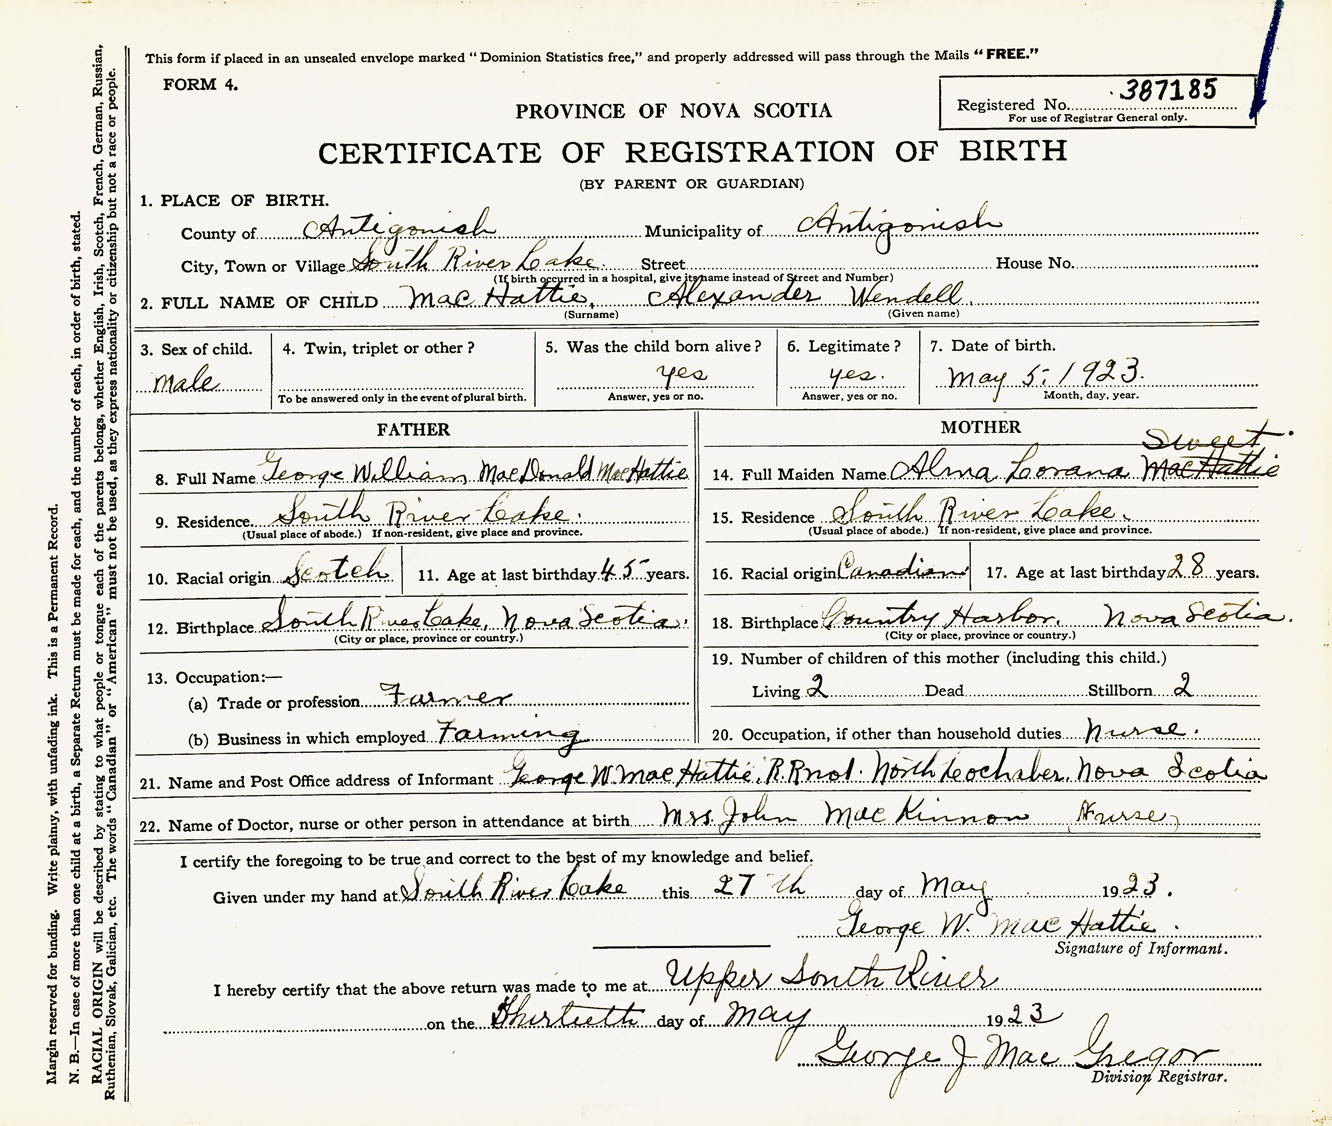 This form if placed in an unsealed envelope marked "Dominion Statistics free," and properly addressed will pass through the Mails "FREE."
FORM 4.
Registered No. 387185
For use of Registrar General only.
PROVINCE OF NOVA SCOTIA
CERTIFICATE OF REGISTRATION OF BIRTH
(BY PARENT OR GUARDIAN)
1. PLACE OF BIRTH.
County of Antigonish Municipality of Antigonish
City, Town or Village South River Lake. Street House No.
(If birth occurred in a hospital, give its name instead of Street and Number)
2. FULL NAME OF CHILD MacHattie, Alexander Wendell.
(Surname) (Given name)
3. Sex of child. 4. Twin, triplet or other? 5. Was the child born alive? 6. Legitimate? 7. Date of birth.
male yes yes. May 5, 1923.
To be answered only in the event of plural birth. Answer, yes or no. Answer, yes or no. Month, day, year.
FATHER
8. Full Name George William MacDonald MacHattie
9. Residence. South River Lake.
(Usual place of abode.) If non-resident, give place and province.
10. Racial origin Scotch 11. Age at last birthday 45 years.
12. Birthplace South River Lake, Nova Scotia.
(City or place, province or country.)
13. Occupation:—
(a) Trade or profession Farmer
(b) Business in which employed Farming
MOTHER
Sweet
14. Full Maiden Name Alma Lorana MacHattie
15. Residence South River Lake.
(Usual place of abode.) If non-resident, give place and province.
16. Racial origin Canadian 17. Age at last birthday 28 years.
18. Birthplace Country Harbor, Nova Scotia.
(City or place, province or country.)
19. Number of children of this mother (including this child.)
Living 2 Dead Stillborn 2
20. Occupation, if other than household duties Nurse.
21. Name and Post Office address of Informant George W. MacHattie, R.R no1. North Lochaber, Nova Scotia
22. Name of Doctor, nurse or other person in attendance at birth Mrs. John MacKinnon (Nurse)
I certify the foregoing to be true and correct to the best of my knowledge and belief.
Given under my hand at South River Lake this 27th day of May 1923.
George W. MacHattie.
Signature of Informant.
I hereby certify that the above return was made to me at Upper South River
on the Thirtieth day of May 1923
George J MacGregor
Division Registrar.
Margin reserved for bunding. Write plainly, with unfading ink. This is a Permanent Record.
N. B.—In case of more than one child at a birth, a Separate Return must be made for each, and the number of each, in order of birth, stated.
RACIAL ORIGIN will be described by stating to what people or tongue each of the parents belongs, whether English, Irish, Scotch, French, German, Russian,
Ruthenian, Slovak, Galician, etc. The words "Canadian" or "American" must not be used, as they express nationality or citizenship but not a race or people.